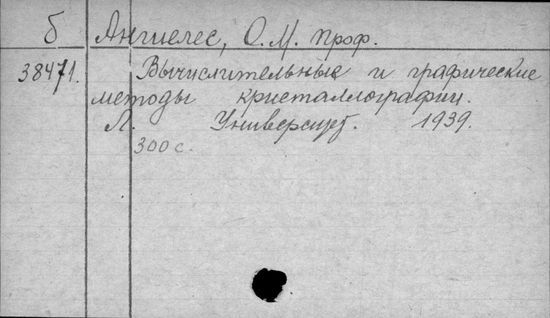 б Ангиелес, О.М. проф.
38471. Вычислительные и графические
методы кристаллографии.
Л. Университ. 1939.
300 с.